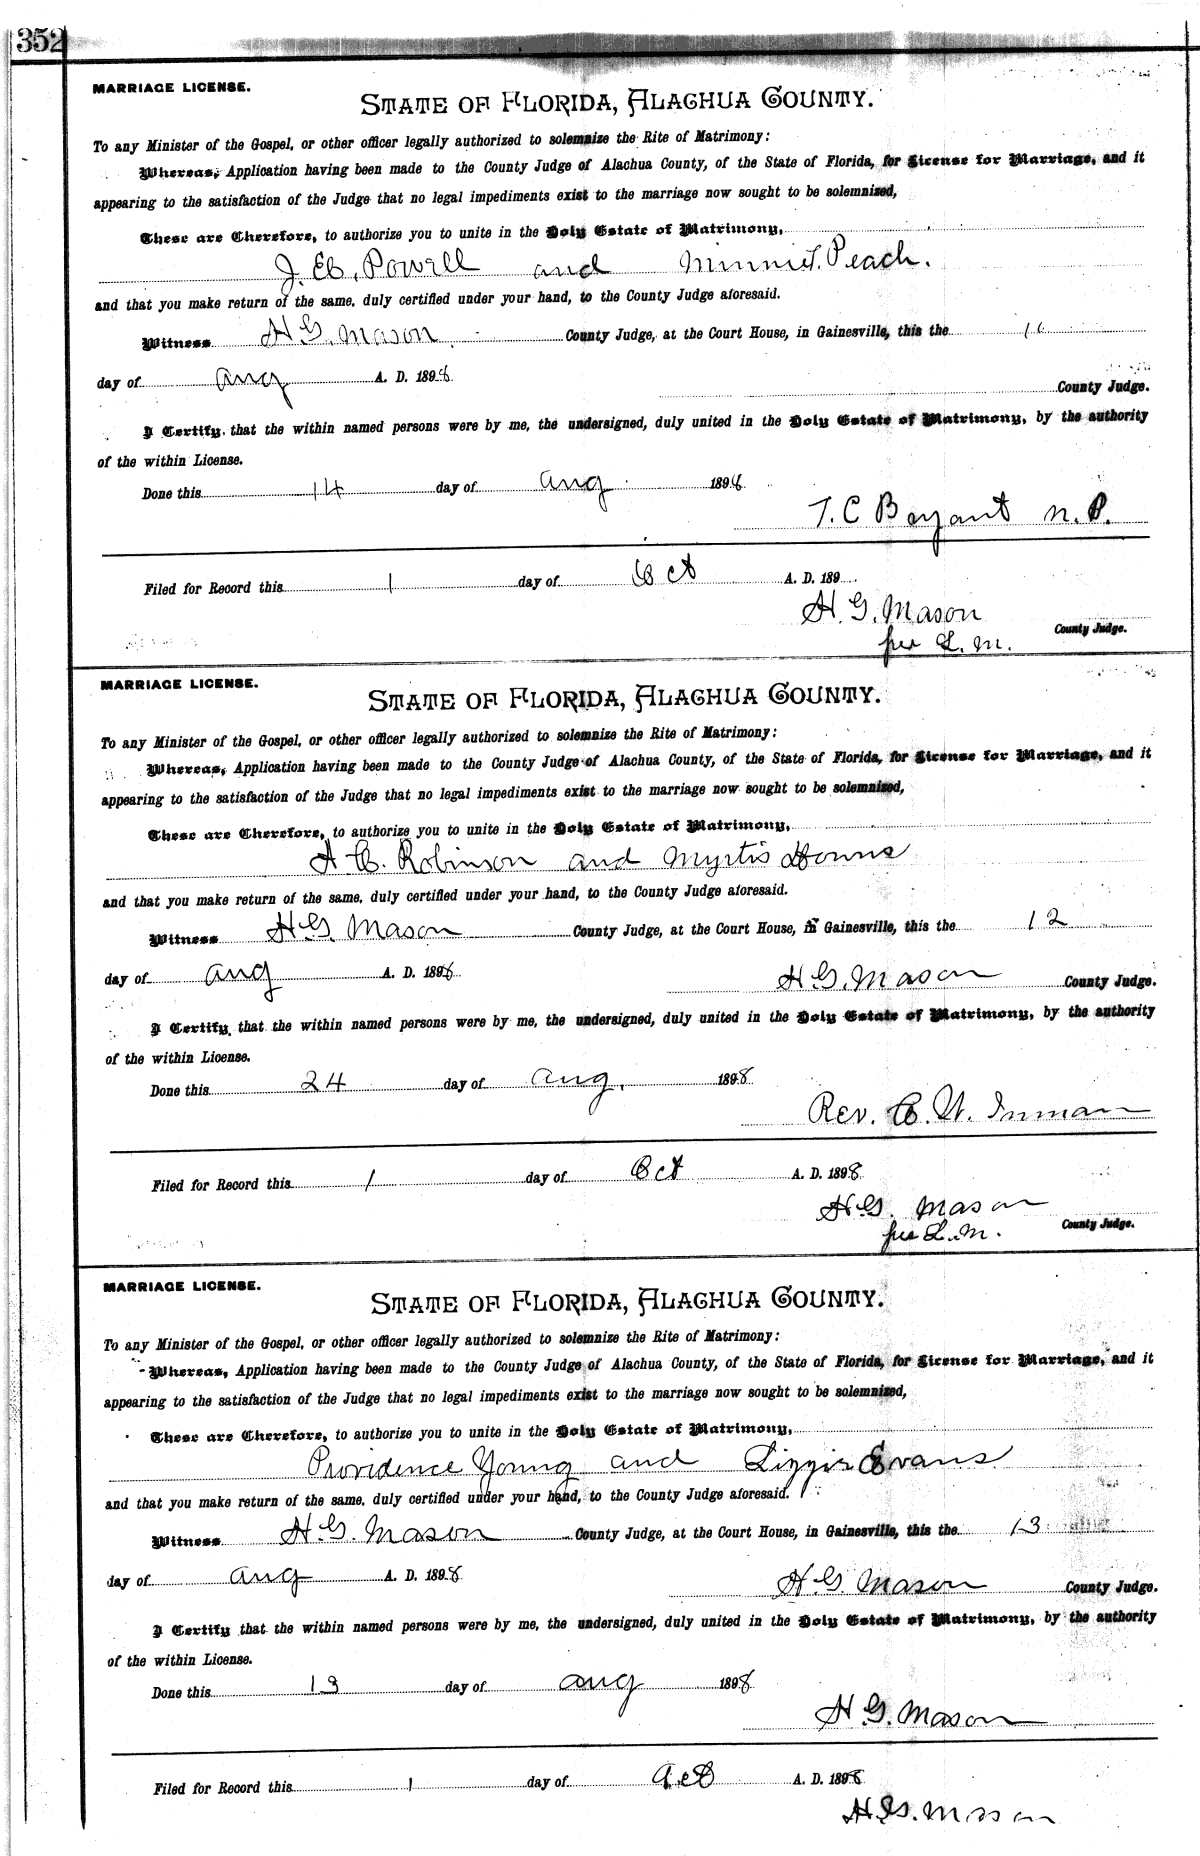 352
MARRIAGE LICENSE.
STATE OF FLORIDA, ALACHUA COUNTY.
To any Minister of the Gospel, or other officer legally authorized to solemnize the Rite of Matrimony:
Whereas, Application having been made to the County Judge of Alachua County, of the State of Florida, for License for Marriage, and it
appearing to the satisfaction of the Judge that no legal impediments exist to the marriage now sought to be solemnized,
These are Therefore, to authorize you to unite in the Holy Estate of Matrimony,
J. E. Powell and Minnie T. Peach.
and that you make return of the same, duly certified under your hand, to the County Judge aforesaid.
Witness H G. Mason County Judge, at the Court House, in Gainesville, this the 11
day of Aug A. D. 1898
County Judge.
I Certify that the within named persons were by me, the undersigned, duly united in the Holy Estate of Matrimony, by the authority
of the within License.
Done this 14 day of Aug 1898
T. C Bryant N. P.
Filed for Record this 1 day of Oct A. D. 189
H. G. Mason
per L. M. County Judge.
MARRIAGE LICENSE.
STATE OF FLORIDA, ALACHUA COUNTY.
To any Minister of the Gospel, or other officer legally authorized to solemnize the Rite of Matrimony:
Whereas, Application having been made to the County Judge of Alachua County, of the State of Florida, for License for Marriage, and it
appearing to the satisfaction of the Judge that no legal impediments exist to the marriage now sought to be solemnized,
These are Therefore, to authorize you to unite in the Holy Estate of Matrimony,
Robinson and Myrtis
and that you make return of the same, duly certified under your hand, to the County Judge aforesaid.
Witness H. G. Mason County Judge, at the Court House, in Gainesville, this the 12
day of Aug A. D. 1898
H. G. Mason County Judge.
I Certify that the within named persons were by me, the undersigned, duly united in the Holy Estate of Matrimony, by the authority
of the within License.
Done this 24 day of Aug. 1898
Rev. Inman
Filed for Record this 1 day of Oct A. D. 1898
H. G. Mason
per L. M. County Judge.
MARRIAGE LICENSE.
STATE OF FLORIDA, ALACHUA COUNTY.
To any Minister of the Gospel, or other officer legally authorized to solemnize the Rite of Matrimony:
Whereas, Application having been made to the County Judge of Alachua County, of the State of Florida, for License for Marriage, and it
appearing to the satisfaction of the Judge that no legal impediments exist to the marriage now sought to be solemnized,
These are Therefore, to authorize you to unite in the Holy Estate of Matrimony,
Providence Young and Lizzie Evans
and that you make return of the same, duly certified under your hand, to the County Judge aforesaid.
Witness H. G. Mason County Judge, at the Court House, in Gainesville, this the 13
day of Aug A. D. 1898
H. G. Mason County Judge.
I Certify that the within named persons were by me, the undersigned, duly united in the Holy Estate of Matrimony, by the authority
of the within License.
Done this 13 day of Aug 1898
H. G. Mason
Filed for Record this 1 day of Oct A. D. 1898
H. G. Mason